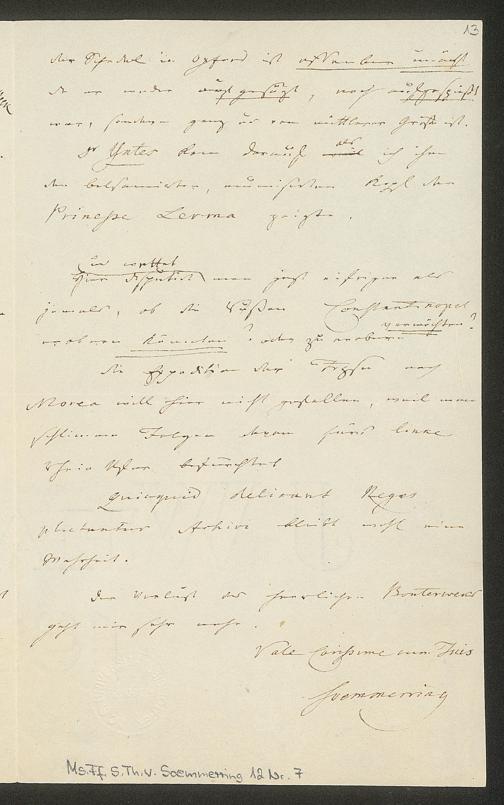 13
der Schedel in Oxford ist offenbar unächt
da er weder durchgesägt, noch aufgespießt
war, sondern ganz u. von mittlerer Größe ist.
Dr Yates kam darauf als ich ihm
den balsamirten, mumisirten Kopf der
Prinesse Lerma zeigte.
und wettet
Hier disputirt man jetzt eifriger als
jemals, ob die Russen Constantinopel
erobern könnten? oder zu erobern vermöchten?
die Expedition der Frzsn nach
Morea will hier nicht gefallen, weil man
schlimme Folgen davon fürs linke
Rhein Ufer befürchtet
Quicquid delirant Reges
plectuntur Achivi bleibt wohl eine
Wahrheit.
Der Verlust des herrlichen Bouterweks
geht mir sehr nahe.
Vale Carissime cum Tuis
Soemmerring
Ms. Ff. S. Th. v. Soemmerring 12 Nr. 7